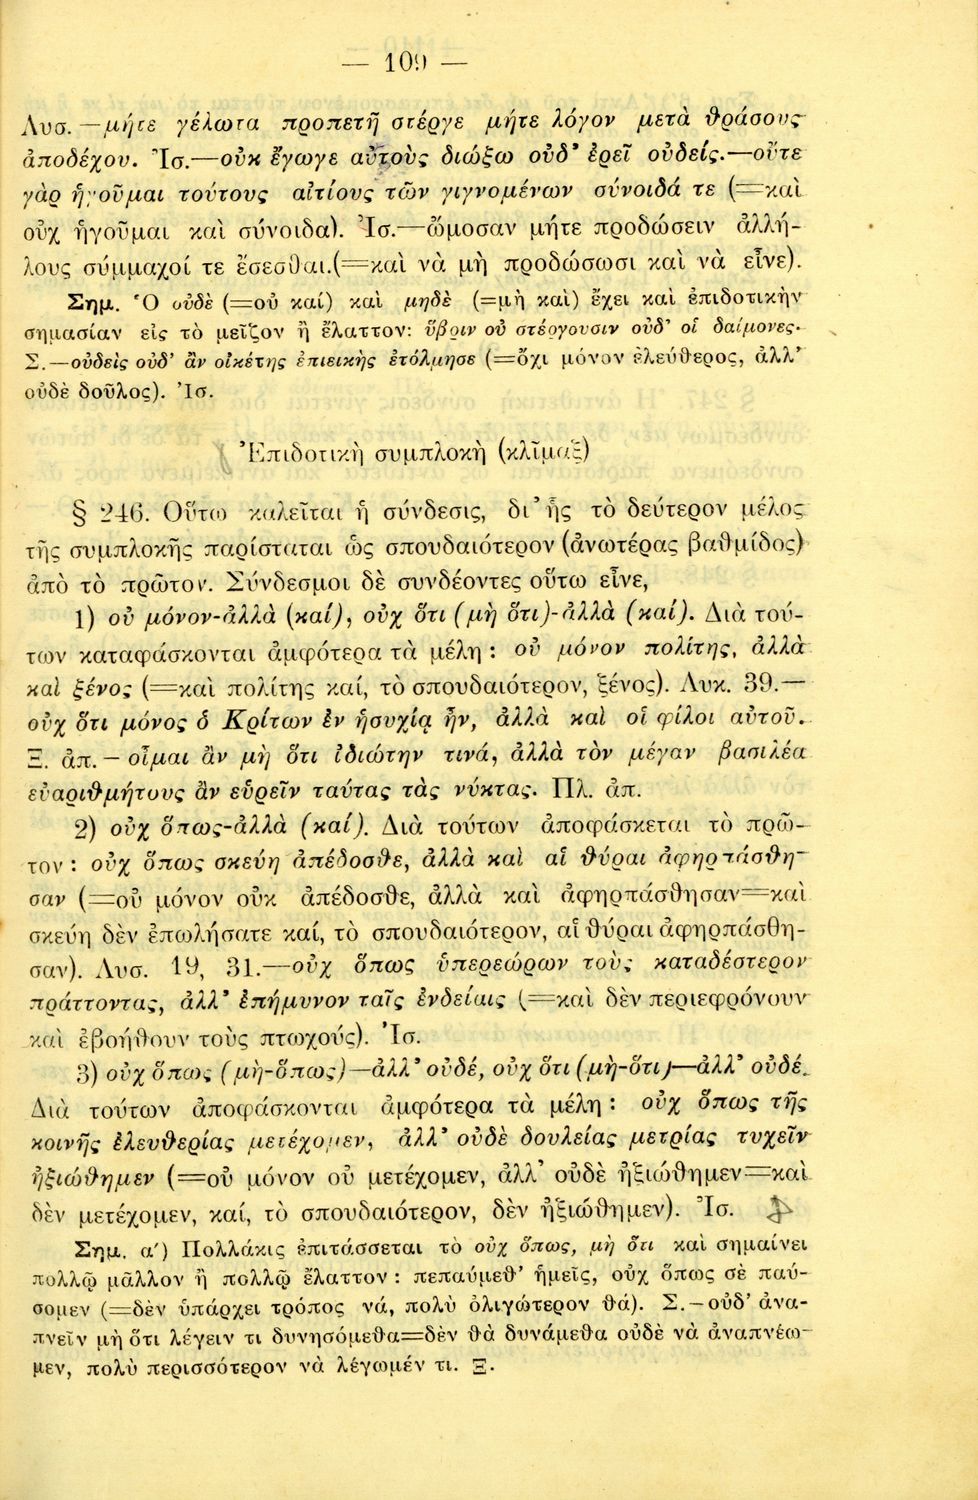 — 109 —
Λυσ. —μήτε γέλωτα προπετῆ στέργε μήτε λόγον μετὰ θράσους
ἀποδέχου. Ἰσ.—οὐκ ἔγωγε αὐτοὺς διώξω οὐδ’ ἐρεῖ οὐδείς.—οὔτε
γὰρ ἡγοῦμαι τούτους αἰτίους τῶν γιγνομένων σύνοιδά τε (=καὶ
οὐχ ἡγοῦμαι καὶ σύνοιδα). Ἰσ.—ὤμοσαν μήτε προδώσειν ἀλλή-
λους σύμμαχοί τε ἔσεσθαι.(=καὶ νὰ μὴ προδώσωσι καὶ νὰ εἶνε).
Σημ. Ὁ οὐδὲ (=οὐ καί) καὶ μηδὲ (=μὴ καὶ) ἔχει καὶ ἐπιδοτικὴν
σημασίαν εἰς τὸ μεῖζον ἢ ἔλαττον: ὕβριν οὐ στέργουσιν οὐδ’ οἱ δαίμονες.
Σ.—οὐδεὶς οὐδ’ ἂν οἰκέτης ἐπιεικὴς ἐτόλμησε (=ὄχι μόνον ἐλεύθερος, ἀλλ’
οὐδὲ δοῦλος). Ἰσ.
Ἐπιδοτικὴ συμπλοκὴ (κλῖμαξ)
§ 246. Οὕτω καλεῖται ἡ σύνδεσις, δι’ ἧς τὸ δεύτερον μέλος
τῆς συμπλοκῆς παρίσταται ὡς σπουδαιότερον (ἀνωτέρας βαθμίδος)
ἀπὸ τὸ πρῶτον. Σύνδεσμοι δὲ συνδέοντες οὕτω εἶνε,
1) οὐ μόνον-ἀλλὰ (καί), οὐχ ὅτι (μὴ ὅτι)-ἀλλὰ (καί). Διὰ τού-
των καταφάσκονται ἀμφότερα τὰ μέλη : οὐ μόνον πολίτης, ἀλλὰ
καὶ ξένος (=καὶ πολίτης καί, τὸ σπουδαιότερον, ξένος). Λυκ. 39.—
οὐχ ὅτι μόνος ὁ Κρίτων ἐν ἡσυχίᾳ ἦν, ἀλλὰ καὶ οἱ φίλοι αὐτοῦ.
Ξ. ἀπ. — οἶμαι ἂν μὴ ὅτι ἰδιώτην τινά, ἀλλὰ τὸν μέγαν βασιλέα
εὐαριθμήτους ἂν εὑρεῖν ταύτας τὰς νύκτας. Πλ. ἀπ.
2) οὐχ ὅπως-ἀλλὰ (καί). Διὰ τούτων ἀποφάσκεται τὸ πρῶ-
τον : οὐχ ὅπως σκεύη ἀπέδοσθε, ἀλλὰ καὶ αἱ θύραι ἀφηρπάσθη-
σαν (=οὐ μόνον οὐκ ἀπέδοσθε, ἀλλὰ καὶ ἀφηρπάσθησαν=καὶ
σκεύη δὲν ἐπωλήσατε καί, τὸ σπουδαιότερον, αἱ θύραι ἀφηρπάσθη-
σαν). Λυσ. 19, 31.—οὐχ ὅπως ὑπερεώρων τοὺς καταδέστερον
πράττοντας, ἀλλ’ ἐπήμυνον ταῖς ἐνδείαις (=καὶ δὲν περιεφρόνουν
καὶ ἐβοήθουν τοὺς πτωχούς). Ἰσ.
3) οὐχ ὅπως (μὴ-ὅπως)—ἀλλ’ οὐδέ, οὐχ ὅτι (μὴ-ὅτι)—ἀλλ’ οὐδέ.
Διὰ τούτων ἀποφάσκονται ἀμφότερα τὰ μέλη : οὐχ ὅπως τῆς
κοινῆς ἐλευθερίας μετέχομεν, ἀλλ’ οὐδὲ δουλείας μετρίας τυχεῖν
ἠξιώθημεν (=οὐ μόνον οὐ μετέχομεν, ἀλλ’ οὐδὲ ἠξιώθημεν=καὶ
δὲν μετέχομεν, καί, τὸ σπουδαιότερον, δὲν ἠξιώθημεν). Ἰσ.
Σημ. α′) Πολλάκις ἐπιτάσσεται τὸ οὐχ ὅπως, μὴ ὅτι καὶ σημαίνει
πολλῷ μᾶλλον ἢ πολλῷ ἔλαττον : πεπαύμεθ’ ἡμεῖς, οὐχ ὅπως σὲ παύ-
σομεν (=δὲν ὑπάρχει τρόπος νά, πολὺ ὀλιγώτερον θά). Σ.—οὐδ’ ἀνα-
πνεῖν μὴ ὅτι λέγειν τι δυνησόμεθα=δὲν θὰ δυνάμεθα οὐδὲ νὰ ἀναπνέω-
μεν, πολὺ περισσότερον νὰ λέγωμέν τι. Ξ.